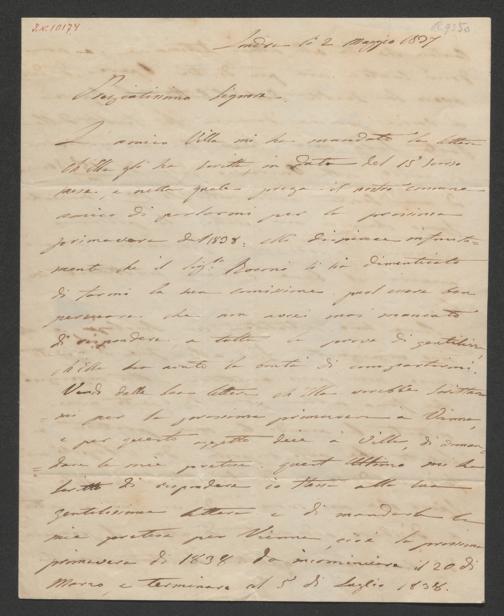 I.N. 10174
Londra li 2 Maggio 1837
Pregiatissimo Signore.
L'amico Villa mi ha mandato la lettera
ch'Ella gli ha scritto, in data del 15 scorso
mese, e nella quale prega il nostro comune
amico di parlarmi per la prossima
primavera del 1838. mi dispiace
mente che il Sigr. ha dimenticato
di farmi la sua comissione
che non avrei mai mancato
di rispondere a tutte le prove di gentilezza
ch'Ella ha avuto la bontà di compartirmi.
Vendo dalla sua lettera ch'Ella vorrebbe scrittu
mi per la prossima primavera a Vienna,
e per questo oggetto dice a Villa, di doman
= dare le mie pretese. quest'ultimo mi ha
scritto di rispondere io stesso alla sua
gentilissima lettera e di mandarle le
mie pretese per Vienna, cioè la prossima
primavera di 1838 da incominciare il 20 di
Marzo, e terminare al 5 di Luglio 1838.